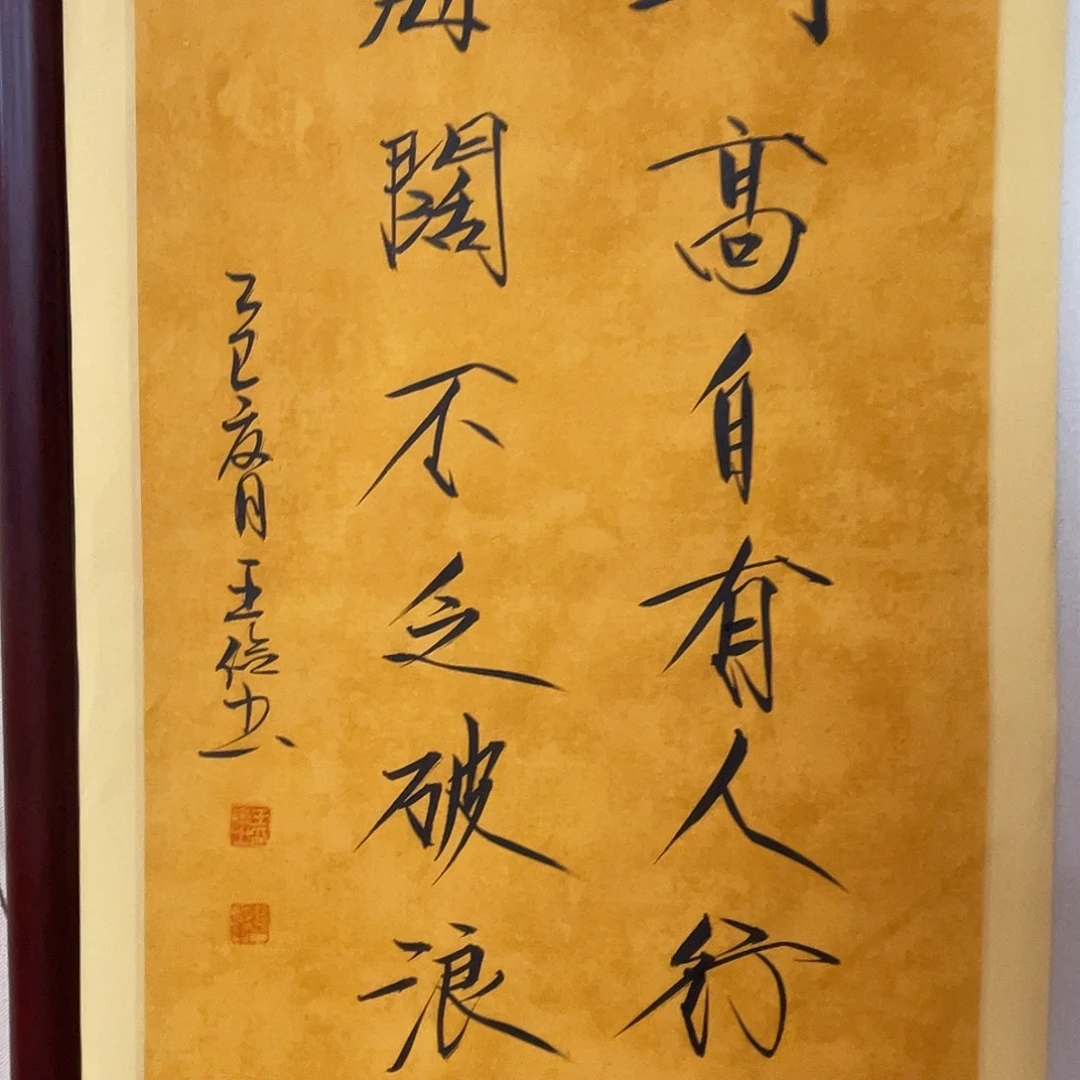 高自有人行
海闊不乏破浪
乙巳夏月王俭书